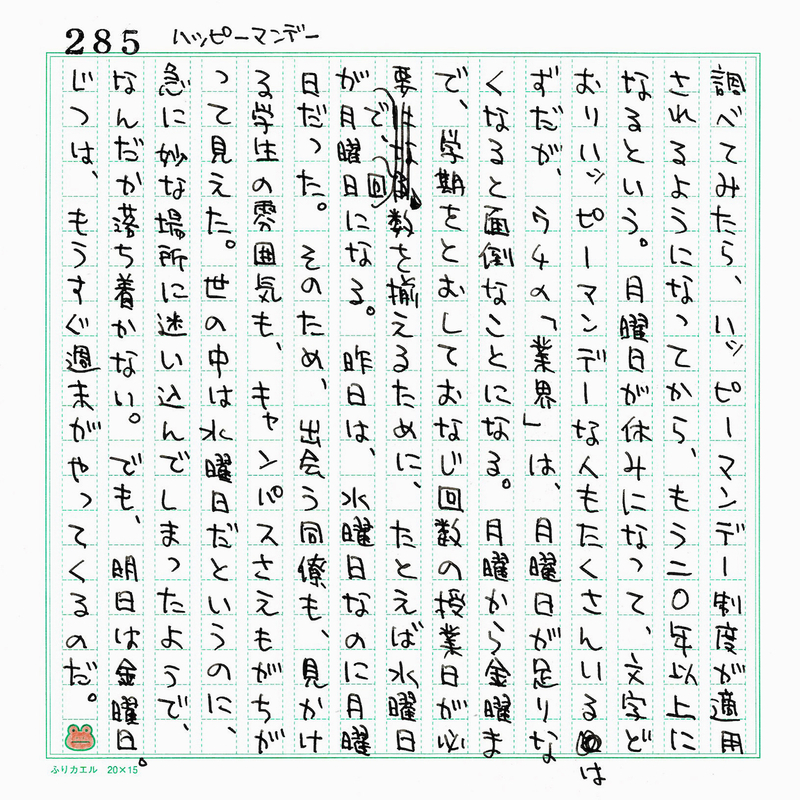 285 ハッピーマンデー
調べてみたら、ハッピーマンデー制度が適用
されるようになってから、もう二〇年以上に
なるという。月曜日が休みになって、文字ど
おりハッピーマンデーな人もたくさんいるは
ずだが、ウチの「業界」は、月曜日が足りな
くなると面倒なことになる。月曜から金曜ま
で、学期をとおしておなじ回数の授業日が必
要で、回数を揃えるために、たとえば水曜日
が月曜日になる。昨日は、水曜日なのに月曜
日だった。そのため、出会う同僚も、見かけ
る学生の雰囲気も、キャンパスさえもがちが
って見えた。世の中は水曜日だというのに、
急に妙な場所に迷い込んでしまったようで、
なんだか落ち着かない。でも、明日は金曜日。
じつは、もうすぐ週末がやってくるのだ。
ふりカエル 20×15